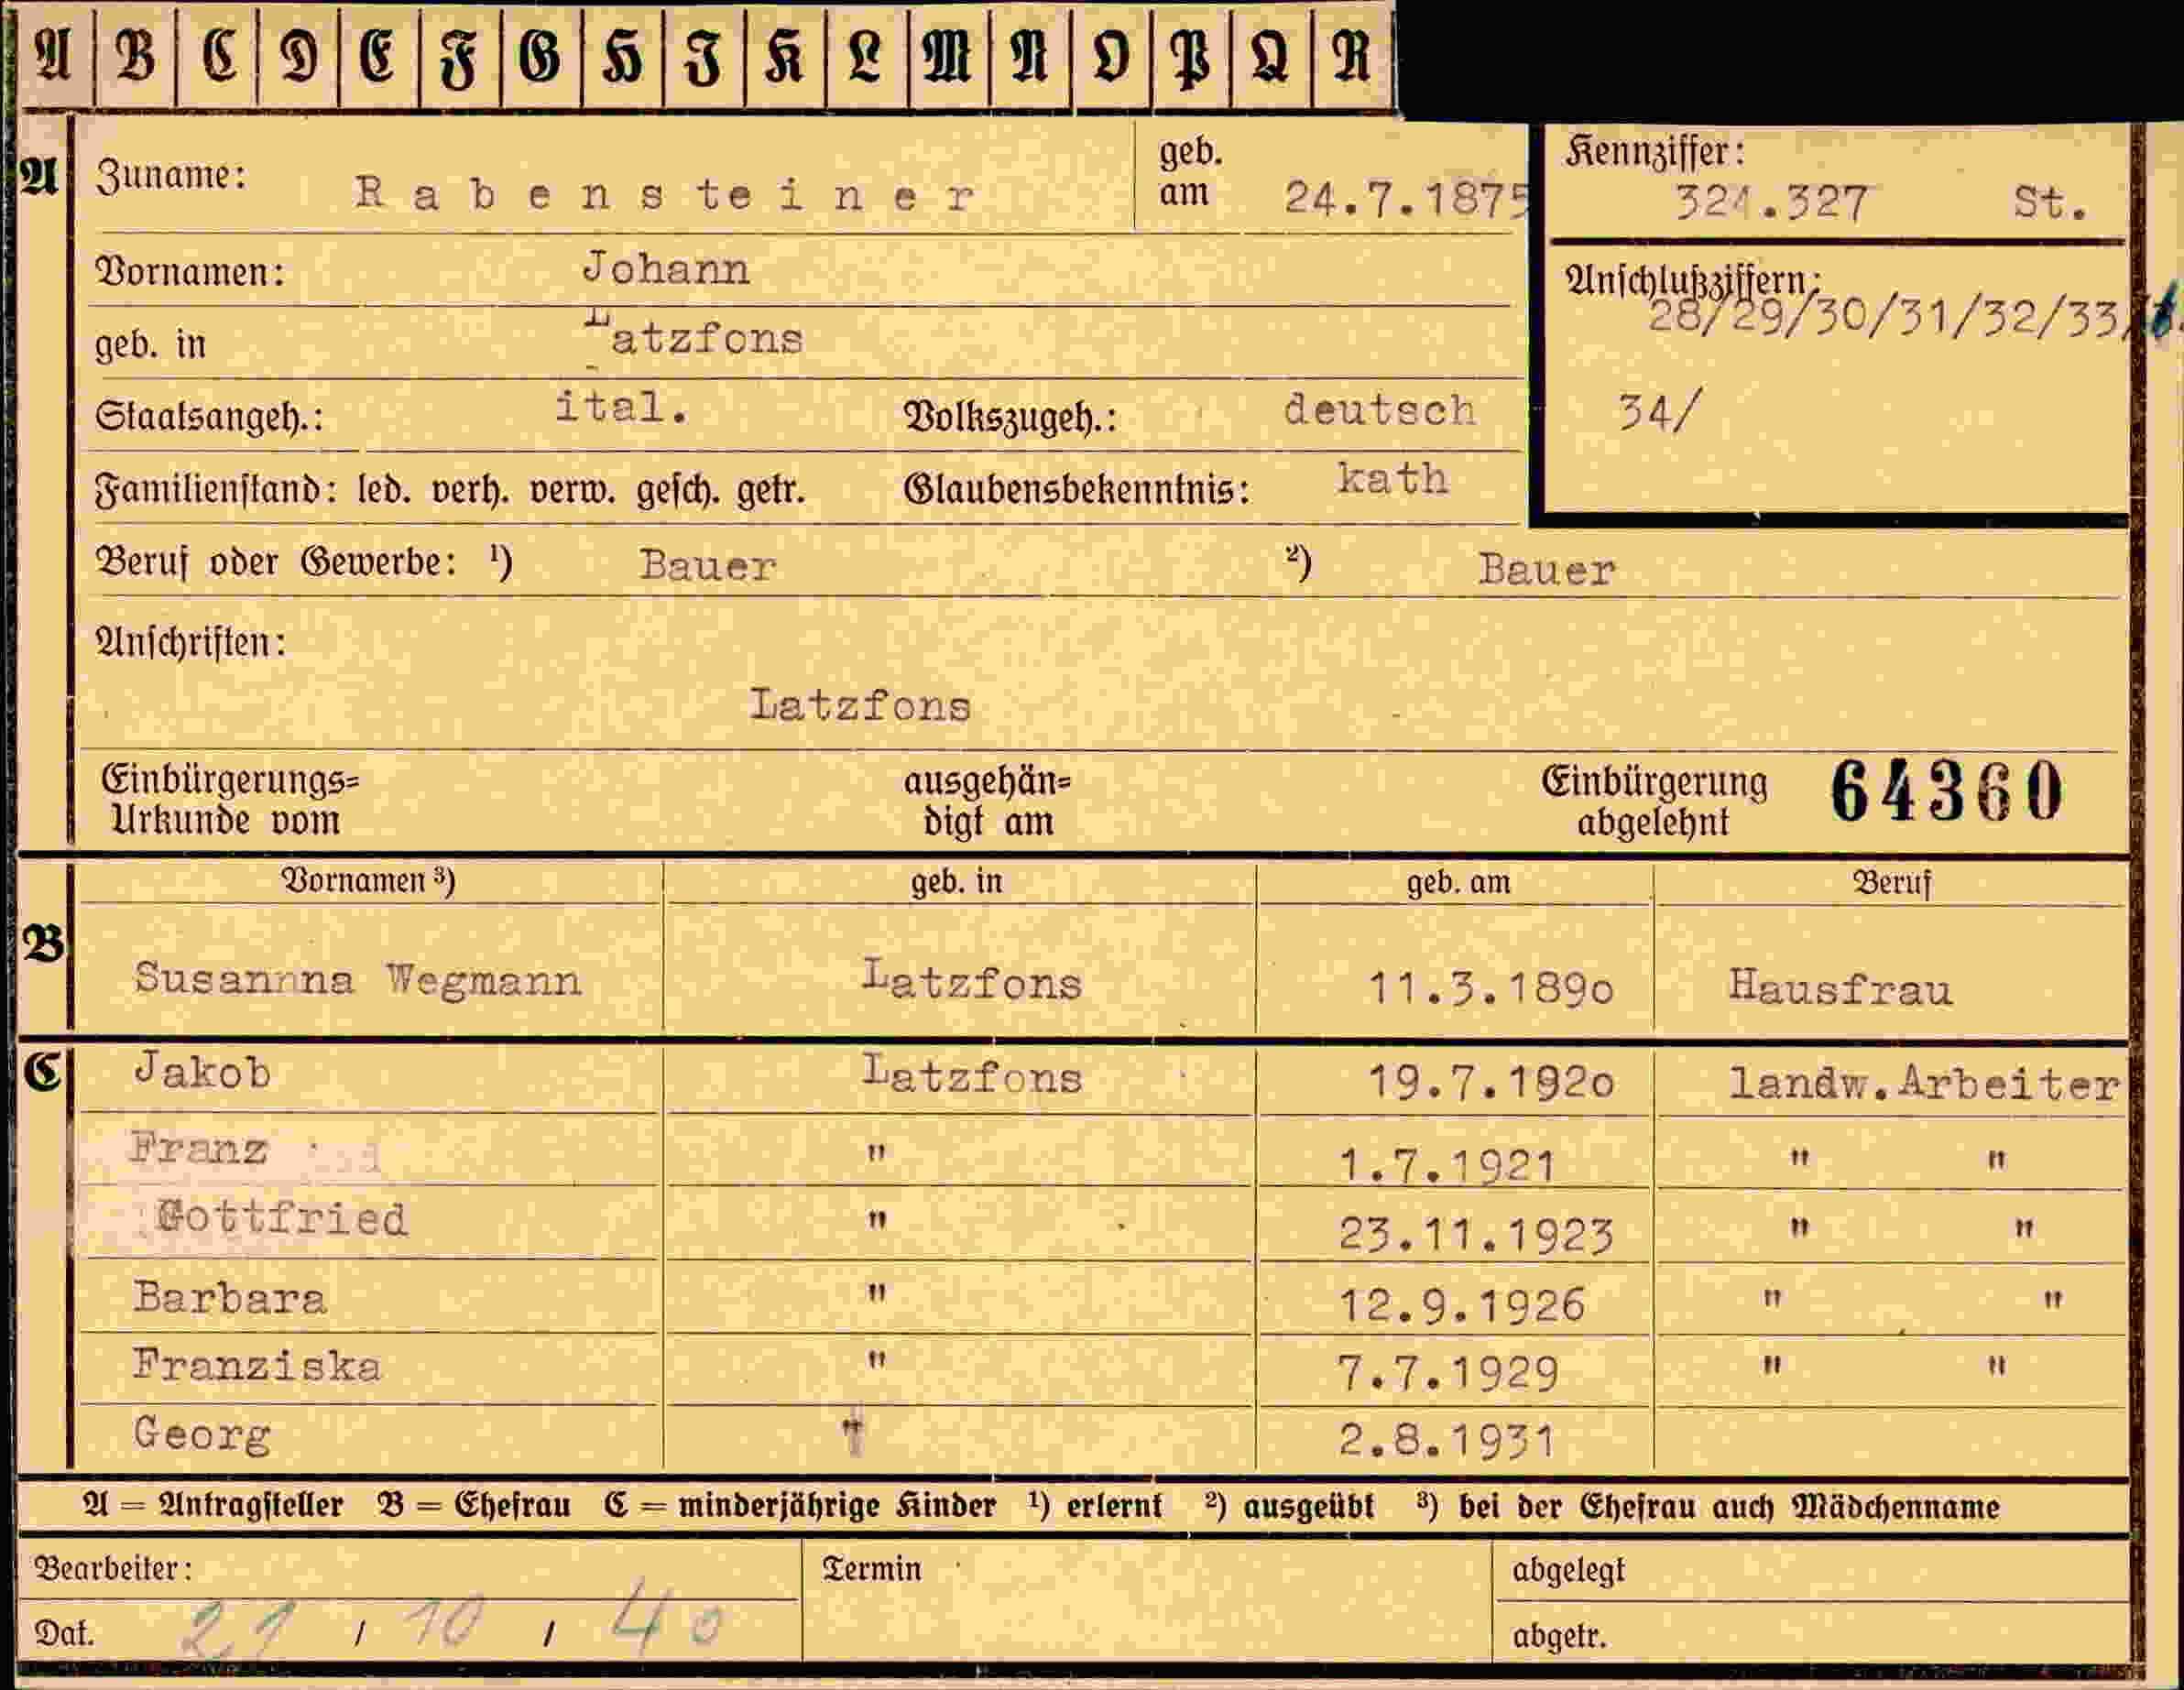 A B C D E F G H I K L M N O P Q R
A Zuname: Rabensteiner geb. am 24.7.1875 Kennziffer: 324.327 St.
Vornamen: Johann
Anschlußziffern:
28/29/30/31/32/33/
geb. in Latzfons
Staatsangeh.: ital. Volkszugeh.: deutsch 34/
Familienstand: led. verh. verw. gesch. getr. Glaubensbekenntnis: kath
Beruf oder Gewerbe: ¹) Bauer ²) Bauer
Anschriften:
Latzfons
Einbürgerungs= ausgehän= Einbürgerung 64360
Urkunde vom digt am abgelehnt
Vornamen ³) geb. in geb. am Beruf
B Susannna Wegmann Latzfons 11.3.1890 Hausfrau
C Jakob Latzfons 19.7.1920 landw.Arbeiter
Franz " 1.7.1921 " "
Gottfried " 23.11.1923 " "
Barbara " 12.9.1926 " "
Franziska " 7.7.1929 " "
Georg " 2.8.1931
A = Antragsteller B = Ehefrau C = minderjährige Kinder ¹) erlernt ²) ausgeübt ³) bei der Ehefrau auch Mädchenname
Bearbeiter: Termin abgelegt
Dat. 21 / 10 / 40 abgetr.